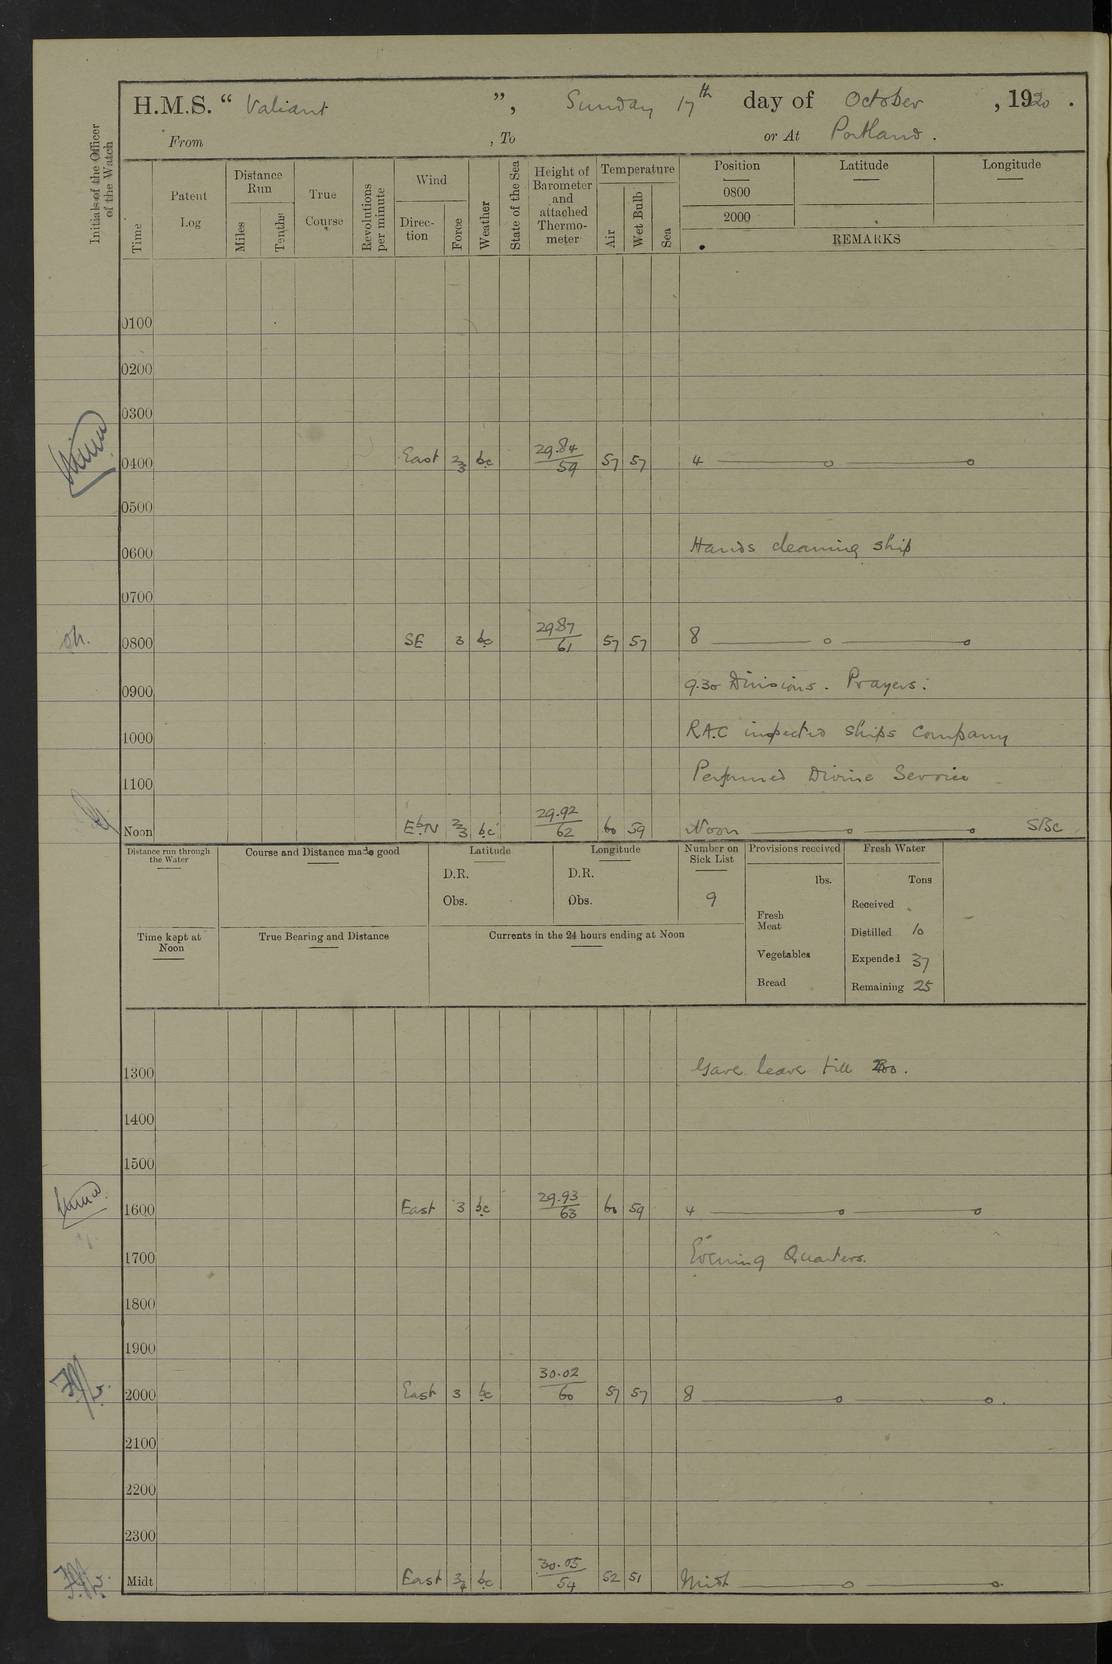 H.M.S. “ Valiant ”, Sunday 17th day of October , 1920 .
From , To or At Portland .
Initials of the Officer of the Watch
Time
Patent Log
Distance Run
Miles
Tenths
True Course
Revolutions per minute
Wind
Direc-tion
Force
Weather
State of the Sea
Height of Barometer and attached Thermo-meter
Temperature
Air
Wet Bulb
Sea
Position Latitude Longitude
0800
2000
REMARKS
0100
0200
0300
0400 East 2/3 bc 29.84/59 57 57 4
0500
0600 Hands cleaning ship
0700
0800 SE 3 bc 2987/61 57 57 8
0900 9.30 Divisions. Prayers.
1000 R.A.C inspected ships Company
1100 Performed Divine Service
Noon EbN 2/3 bc 29.92/62 60 59 Noon SBC
Distance run through the Water
Course and Distance made good
Latitude
D.R.
Obs.
Longitude
D.R.
Obs.
Number on Sick List
9
Provisions received
lbs.
Fresh Meat
Vegetables
Bread
Fresh Water
Tons
Received
Distilled 10
Expended 37
Remaining 25
Time kept at Noon
True Bearing and Distance
Currents in the 24 hours ending at Noon
1300 Gave leave till
1400
1500
1600 East 3 bc 29.93/63 60 59 4
1700 Evening Quarters.
1800
1900
2000 East 3 bc 30.02/60 57 57 8
2100
2200
2300
Midt East 3/4 bc 30.05/54 52 51 Midt